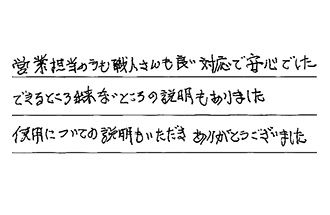 営業担当の方も職人さんも良い対応で安心でした
できるところ出来ないところの説明もありました
使用についての説明もいただき ありがとうございました